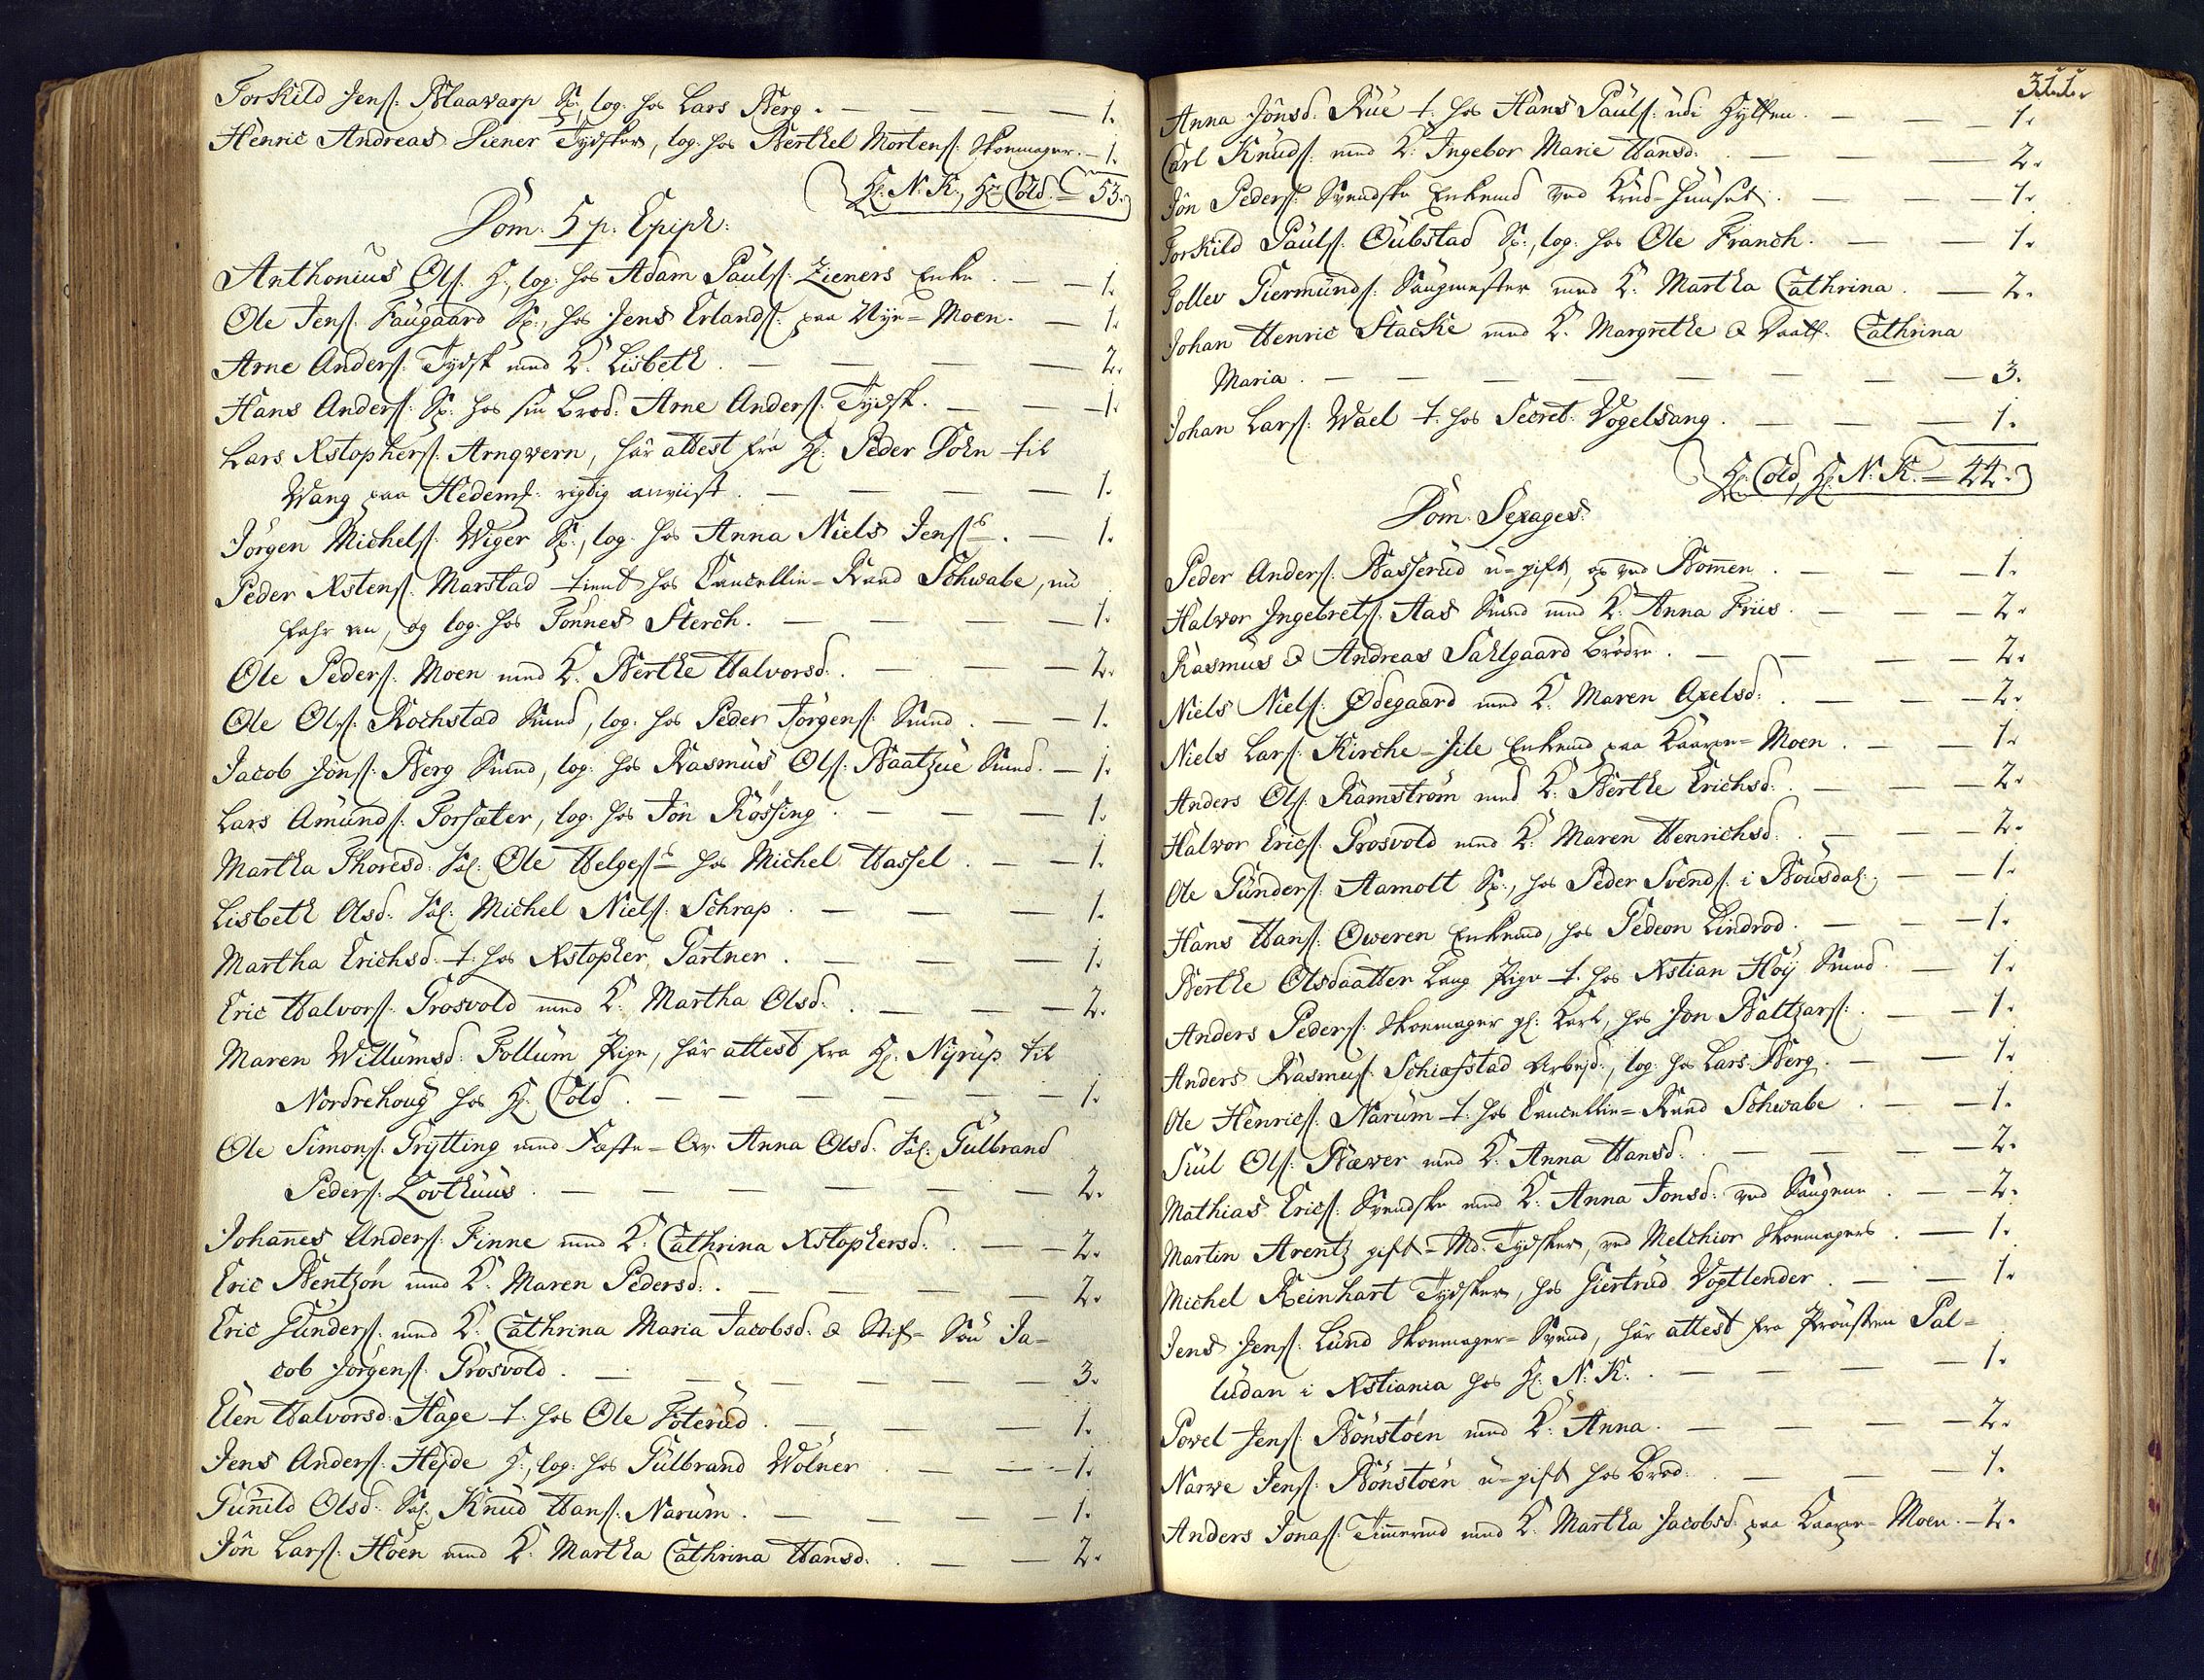 Torkild Jens: Blaavarp Sp:, log: hos Lars Berg. — — — — 1.
Henric Andreas Diener Tydsker, log: hos Berthel Mortens: Skoemager. — 1.
H: N: K:, Hr Cold. = 53.
Dom: 5 p: Epiph:
Anthonius Ols: H:, log: hos Adam Pauls: Zieners Enke. — — 1.
Ole Jens: Faugaard Sp:, hos Jens Erlands: paa Nye-Moen. — 1.
Arne Anders: Tydsk med K: Lisbeth. — — — — 2.
Hans Anders: Sp: hos sin Brod: Arne Anders: Tydsk. — — 1.
Lars Xstophers: Arnqvern, har attest fra H: Peder Dohn til
Wang paa Hedem: rigtig anviist. — — — — 1.
Jörgen Michels: Wiger Sp:, log: hos Anna Niels Jens:. — 1.
Peder Xstens: Marstad tient hos Cancellie-Raad Schwabe, nu
, og log: hos Tönnes Sterch. — — — — 1.
Ole Peders: Moen med K: Berthe Halvorsd:. — — — 2.
Ole Ols: Rochstad Smed, log: hos Peder Jörgens: Smed. — — 1.
Jacob Jöns: Berg Smed, log: hos Rasmus Ols: Baatzue Smed. — 1.
Lars Amunds: Forsæter, log: hos Jön Rössing. — — — 1.
Martha Thoresd: Sal: Ole Helges: hos Michel Hassel. — — 1.
Lisbeth Olsd: Sal: Michel Niels: Schrap. — — — 1.
Martha Erichsd: t: hos Xstopher Gartner. — — — 1.
Eric Halvors: Grosvold med K: Martha Olsd:. — — — 2.
Maren Willumsd: Follum Pige, har attest fra H: Nyrup til
Nordrehoug hos H: Cold. — — — — — — 1.
Ole Simons: Grytting med Fæste-Qv: Anna Olsd: Sal: Gulbrand
Peders: Lovthuus. — — — — — — 2.
Johannes Anders: Finne med K: Cathrina Xstophersd:. — — 2.
Eric Bentzön med K: Maren Pedersd:. — — — — 2.
Eric Gunders: med K: Cathrina Maria Jacobsd: & Stif-Sön Ja-
cob Jörgens: Grosvold. — — — — — — 3.
Elen Halvorsd: Hage t: hos Ole Foterud. — — — — 1.
Jens Anders: Hejde H:, log: hos Gulbrand Wölner. — — — 1.
Gunild Olsd: Sal: Knud Hans: Narum. — — — — 1.
Jön Lars: Höen med K: Martha Cathrina Hansd:. — — 2.
Anna Jönsd: Rue t: hos Hans Pauls: udi Hytten. — — — 1.
Carl Knuds: med K: Ingebor Marie Hansd:. — — — 2.
Jön Peders: Svendske Enkemd ved Krud-Huuset. — — — 1.
Torkild Pauls: Oulstad Sp:, log: hos Ole Franch. — — 1.
Tollev Giermunds: Saugmester med K: Martha Cathrina. — 2.
Johan Henric Stacke med K: Margrethe & Daatt: Cathrina
Maria. — — — — — — — — 3.
Johan Lars: Wael t: hos Secret: Vogelsang. — — — 1.
Hr Cold, H: N: K: = 44.
Dom: Sexages:
Peder Anders: Basserud u-gift, op ved Bommen. — — — 1.
Halvor Ingebrets: Aas Smed med K: Anna Friis. — — 2.
Rasmus & Andreas Sahlgaard Brödre. — — — 2.
Niels Niels: Ødegaard med K: Maren Axelsd:. — — 2.
Niels Lars: Kirche-Jile Enkemd paa Kaaper-Moen. — — 1.
Anders Ols: Ramström med K: Berthe Erichsd:. — — 2.
Halvor Erics: Grosvold med K: Maren Henrichsd:. — — 2.
Ole Gunders: Aamott Sp:, hos Peder Svends: i Bousdal:. — 1.
Hans Hans: Oweren Enkemd, hos Gedeon Lindrod. — — 1.
Berthe Olsdaatter Lang Pige t: hos Xstian Höÿ Smed. — 1.
Anders Peders: Skoemager gl: Karl, hos Jön Baltzars:. — 1.
Anders Rasmus: Schiefstad Arbejd:, log: hos Lars Berg. — 1.
Ole Henrics: Narum t: hos Cancellie-Raad Schwabe. — 1.
Siul Ols: Bæver med K: Anna Hansd:. — — — 2.
Mathias Erics: Svendske med K: Anna Jonsd: ved Saugene. — 2.
Martin Arentz gift-Md: Tydsker, ved Melchior Skoemagers. — 1.
Michel Reinhart Tydsker, hos Giertrud Vogtlender. — — 1.
Jens Jens: Lund Skoemager-Svend, har attest fra Provsten Pal-
ludan i Xstiania hos H: N: K:. — — — 1.
Povel Jens: Bönstöen med K: Anna. — — — 2.
Narve Jens: Bönstöen u-gift hos Brod:. — — 1.
Anders Jonas: Timmermd med K: Martha Jacobsd: paa Kaaper-Moen. — 2.